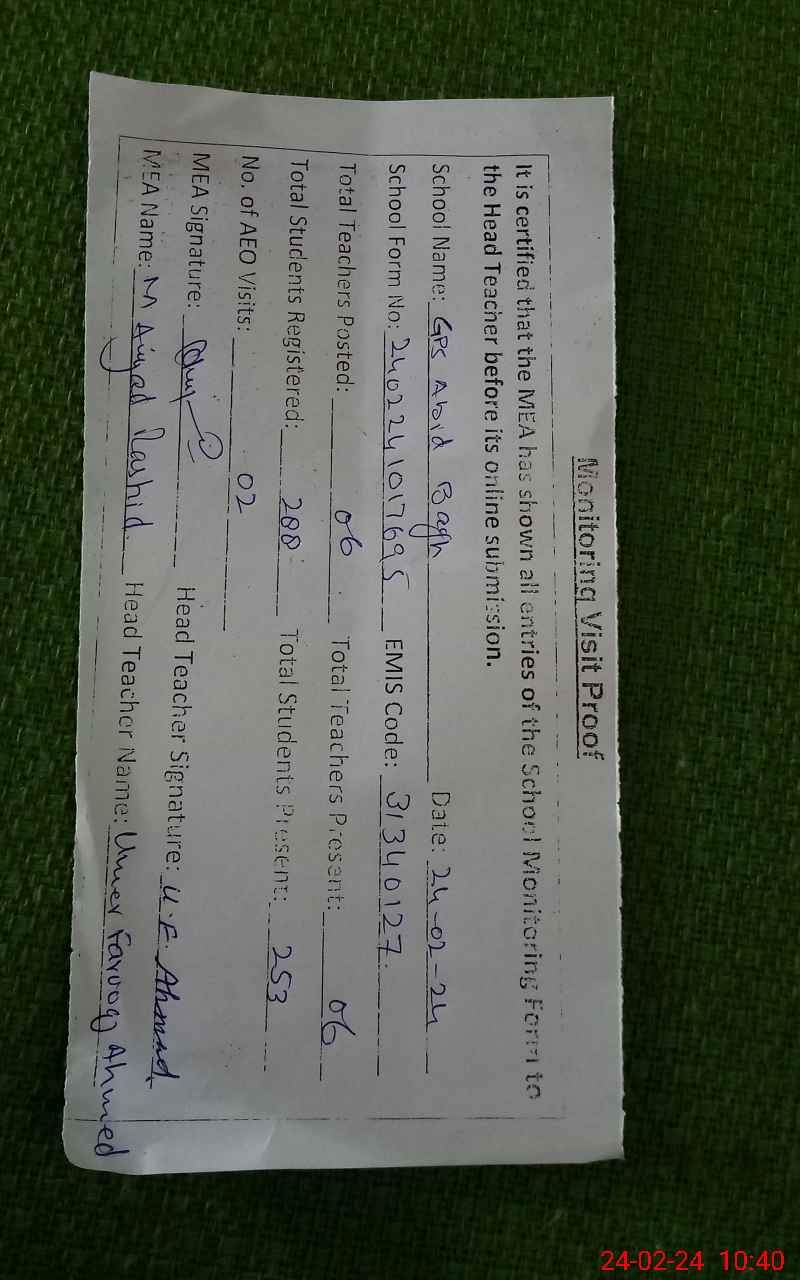 Monitoring Visit Proof
It is certified that the MEA has shown all entries of the School Monitoring Form to
the Head Teacher before its online submission.
School Name: GPS Abid Bagh Date: 24-02-24
School Form No: 2402241017695 EMIS Code: 31340127
Total Teachers Posted: 06 Total Teachers Present: 06
Total Students Registered: 288 Total Students Present: 253
No. of AEO Visits: 02
MEA Signature: Head Teacher Signature: U.F. Ahmed
MEA Name: M Rashid Head Teacher Name: Umer Farooq Ahmed
24-02-24 10:40